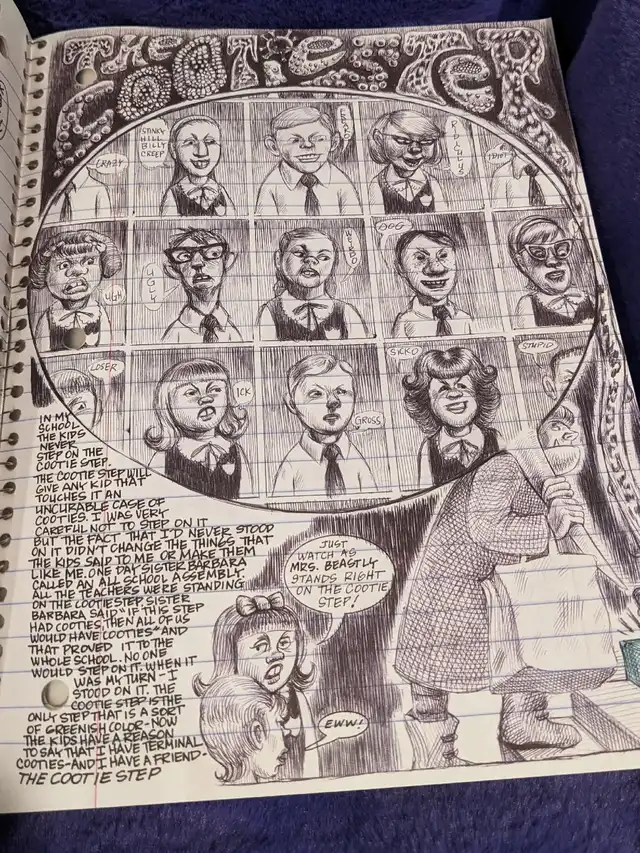 THE
COOTIE STEP
CRAZY
STINKY
HILL
BILLY
CREEP
RIDICULUS
UGH
UGLY
WEIRDO
DOG
LOSER
ICK
GROSS
SKKO
STUPID
IN MY
SCHOOL
THE KIDS
NEVER
STEP ON THE
COOTIE STEP.
THE COOTIE STEP WILL
GIVE ANY KID THAT
TOUCHES IT AN
UNCURABLE CASE OF
COOTIES. I WAS VERY
CAREFUL NOT TO STEP ON IT
BUT THE FACT THAT I'D NEVER STOOD
ON IT DIDN'T CHANGE THE THINGS THAT
THE KIDS SAID TO ME OR MAKE THEM
LIKE ME. ONE DAY SISTER BARBARA
CALLED AN ALL SCHOOL ASSEMBLY.
ALL THE TEACHERS WERE STANDING
ON THE COOTIE STEP. SISTER
BARBARA SAID "IF THIS STEP
HAD COOTIES, THEN ALL OF US
WOULD HAVE COOTIES" AND
THAT PROVED IT TO THE
WHOLE SCHOOL. NO ONE
WOULD STEP ON IT. WHEN IT
WAS MY TURN - I
STOOD ON IT. THE
COOTIE STEP IS THE
ONLY STEP THAT IS A SORT
OF GREENISH COLOR - NOW
THE KIDS HAVE A REASON
TO SAY THAT I HAVE TERMINAL
COOTIES - AND I HAVE A FRIEND -
THE COOTIE STEP
JUST
WATCH AS
MRS. BEASTLY
STANDS RIGHT
ON THE COOTIE
STEP!
EWW!